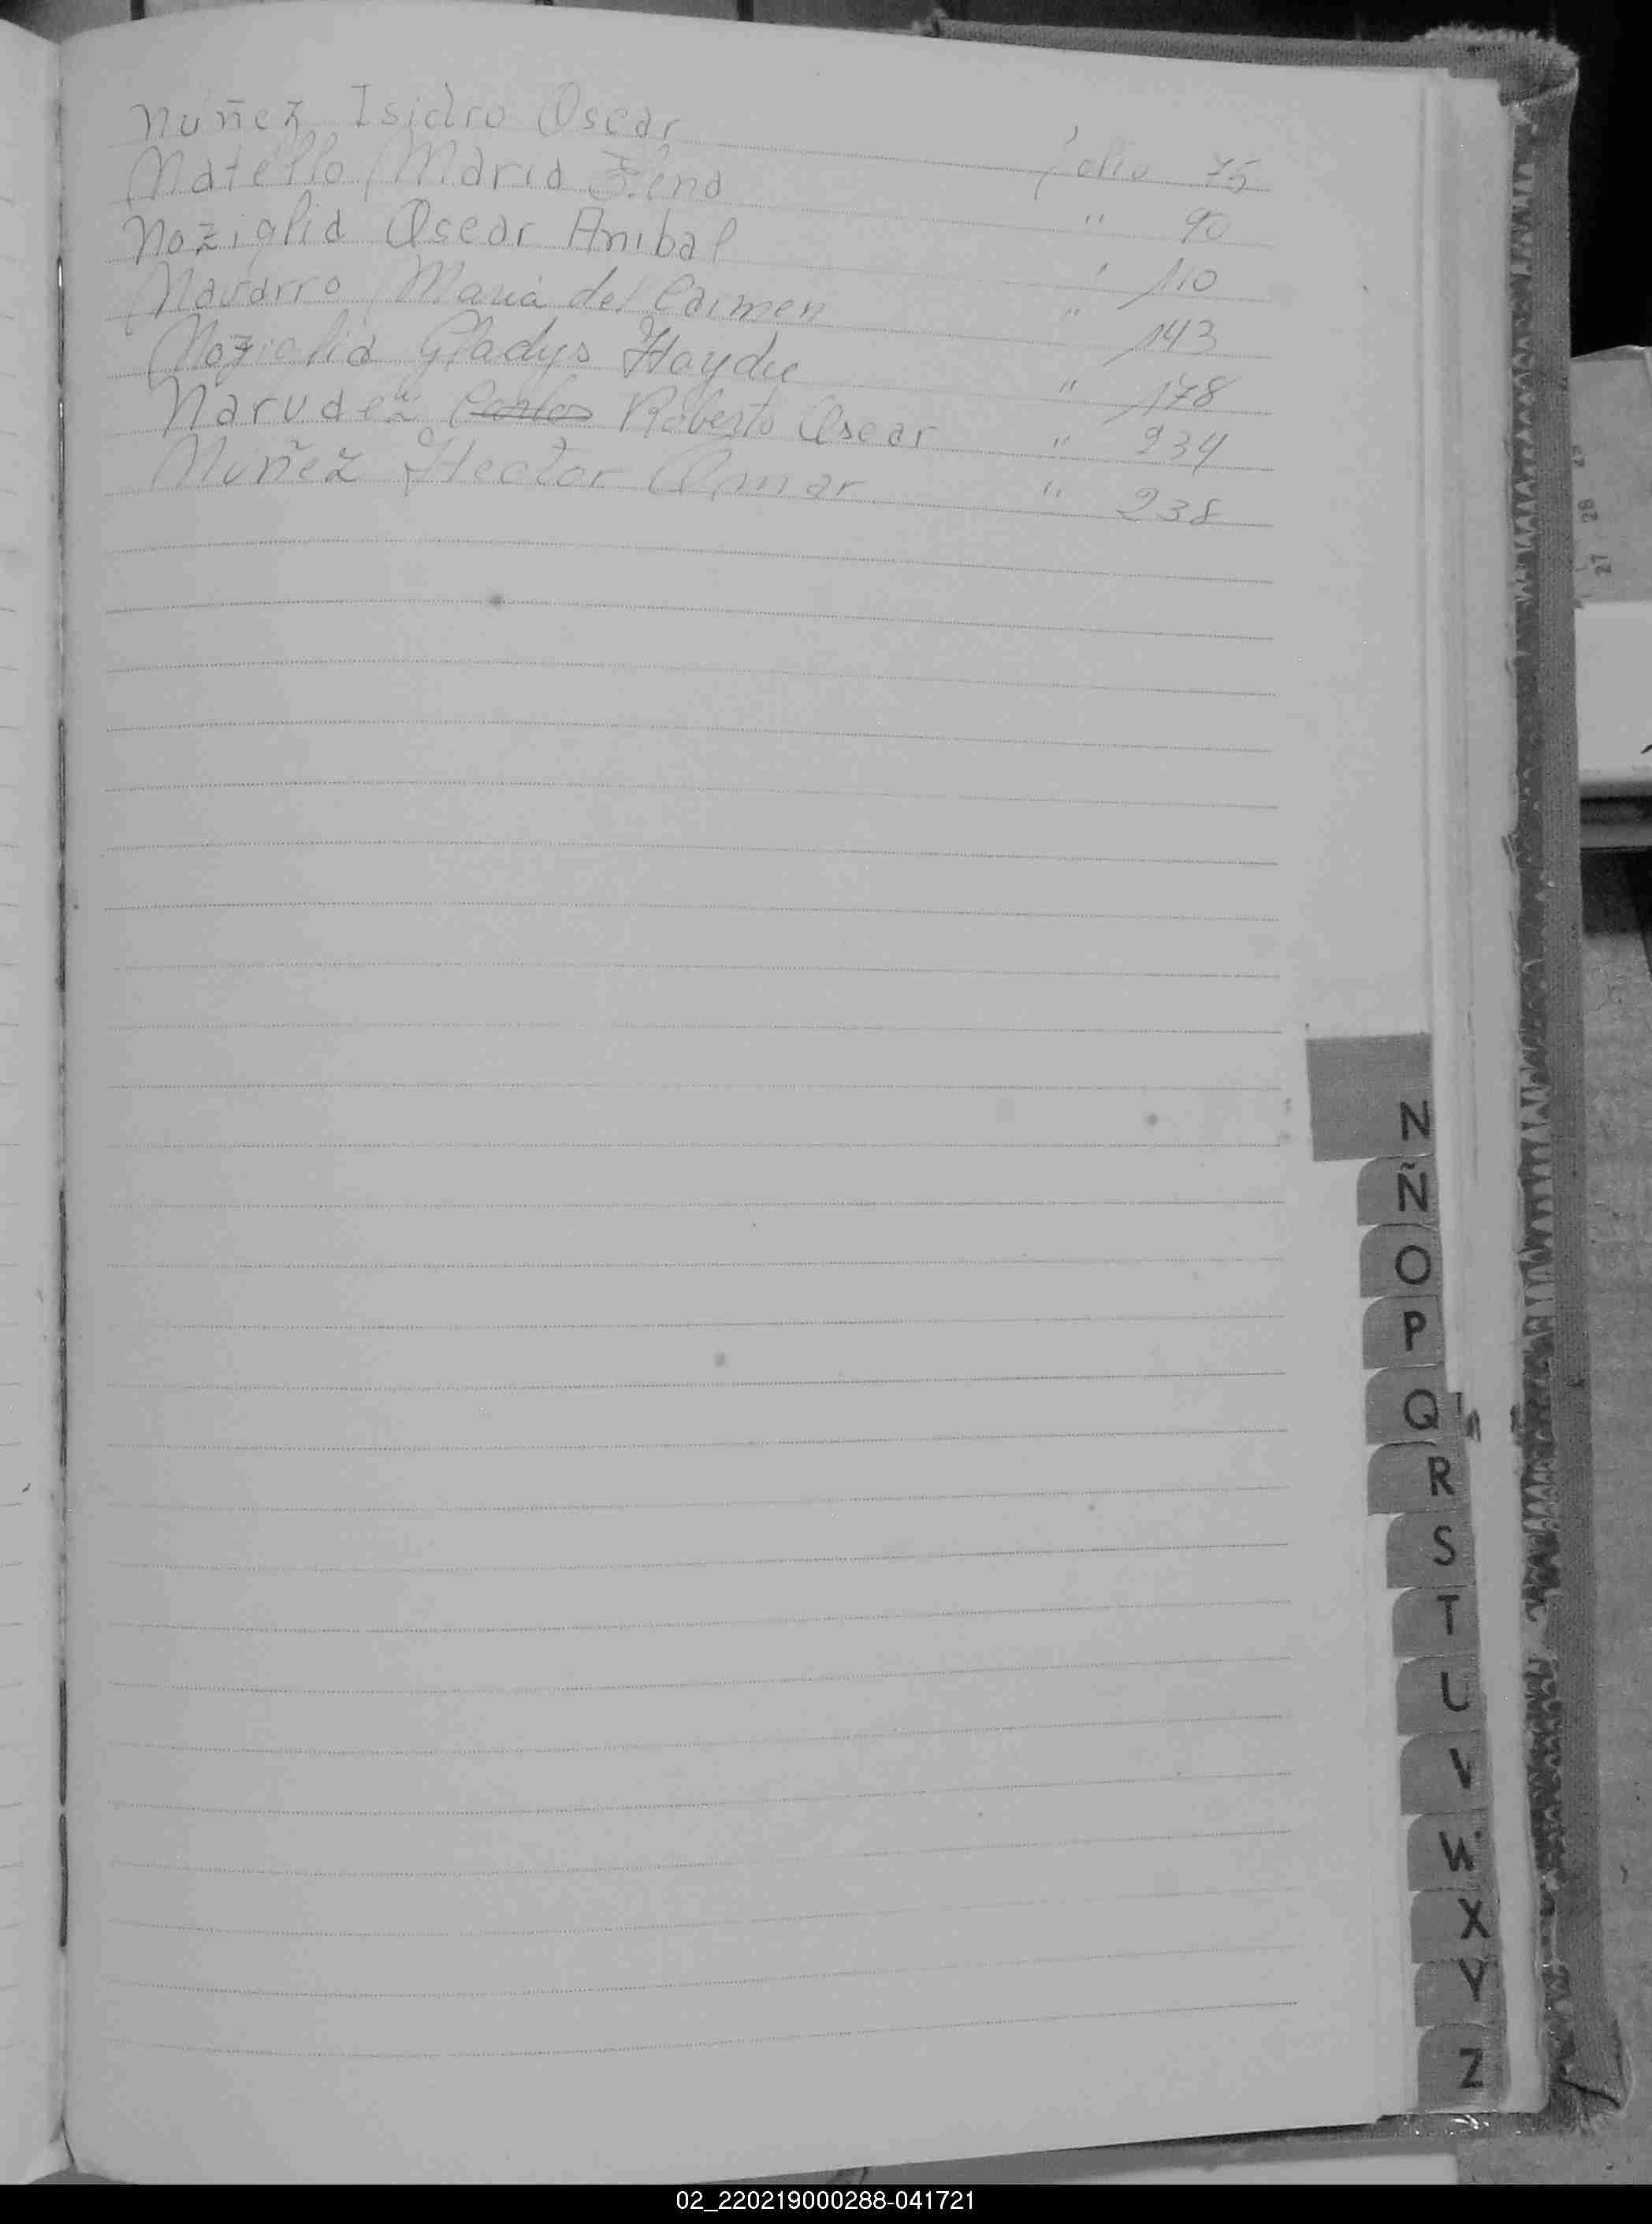 Nuñez Isidro Oscar folio 75
Natello María Elena " 90
Noziglia Oscar Anibal " 110
Navarro María del Carmen " 143
Noziglia Gladys Haydee " 178
Narudez Carlos Roberto Oscar " 234
Nuñez Hector Omar " 238
28
27
N
Ñ
O
P
Q
R
S
T
U
V
W
X
Y
Z
02_220219000288-041721